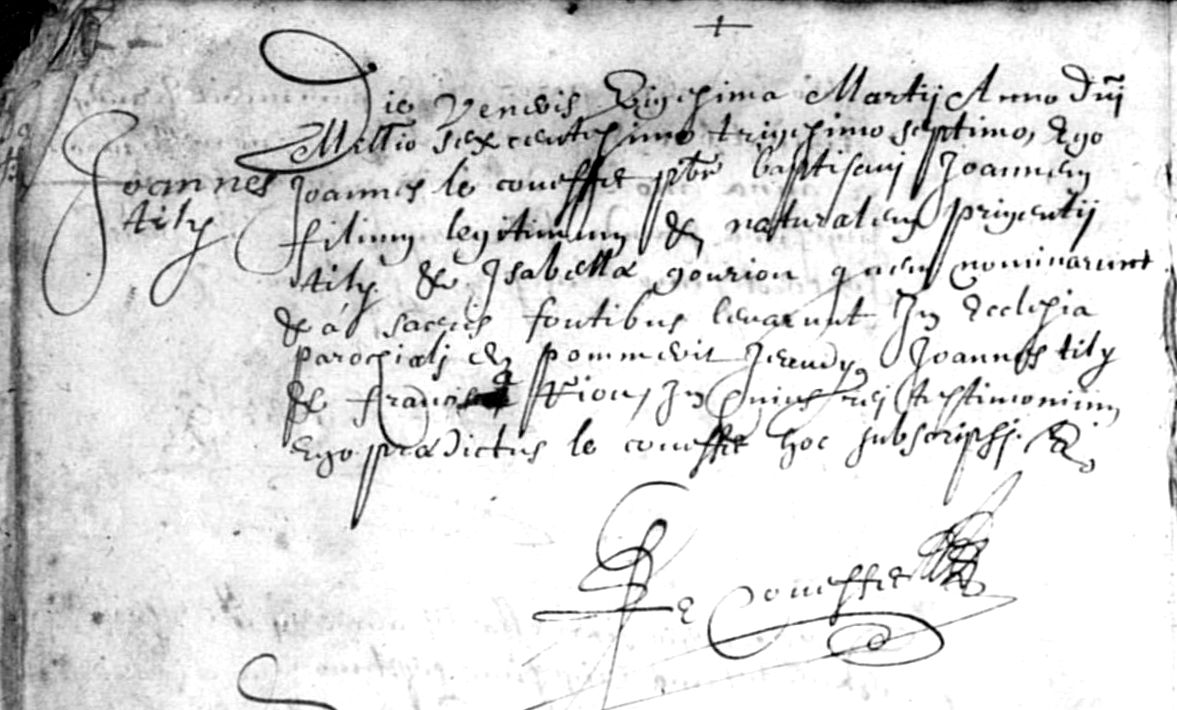 Die Veneris Vigesima Martij Anno Dnj
Millio sexcentesimo trigesimo septimo, Ego
Joannes
Joannes le coueffec pbr baptisavj Joannem
tily
filium legitimum & naturalem prigentij
tily & Jsabella gourion quem nominarunt
& á sacris fontibus leuarunt Jn Ecclesia
parochialj de pommerit Jeaudy Joannes tily
& francisca Rion, Jn cuius rej testimonium
Ego prædictus le coueffec hoc subscripsj. &
Le Coueffec